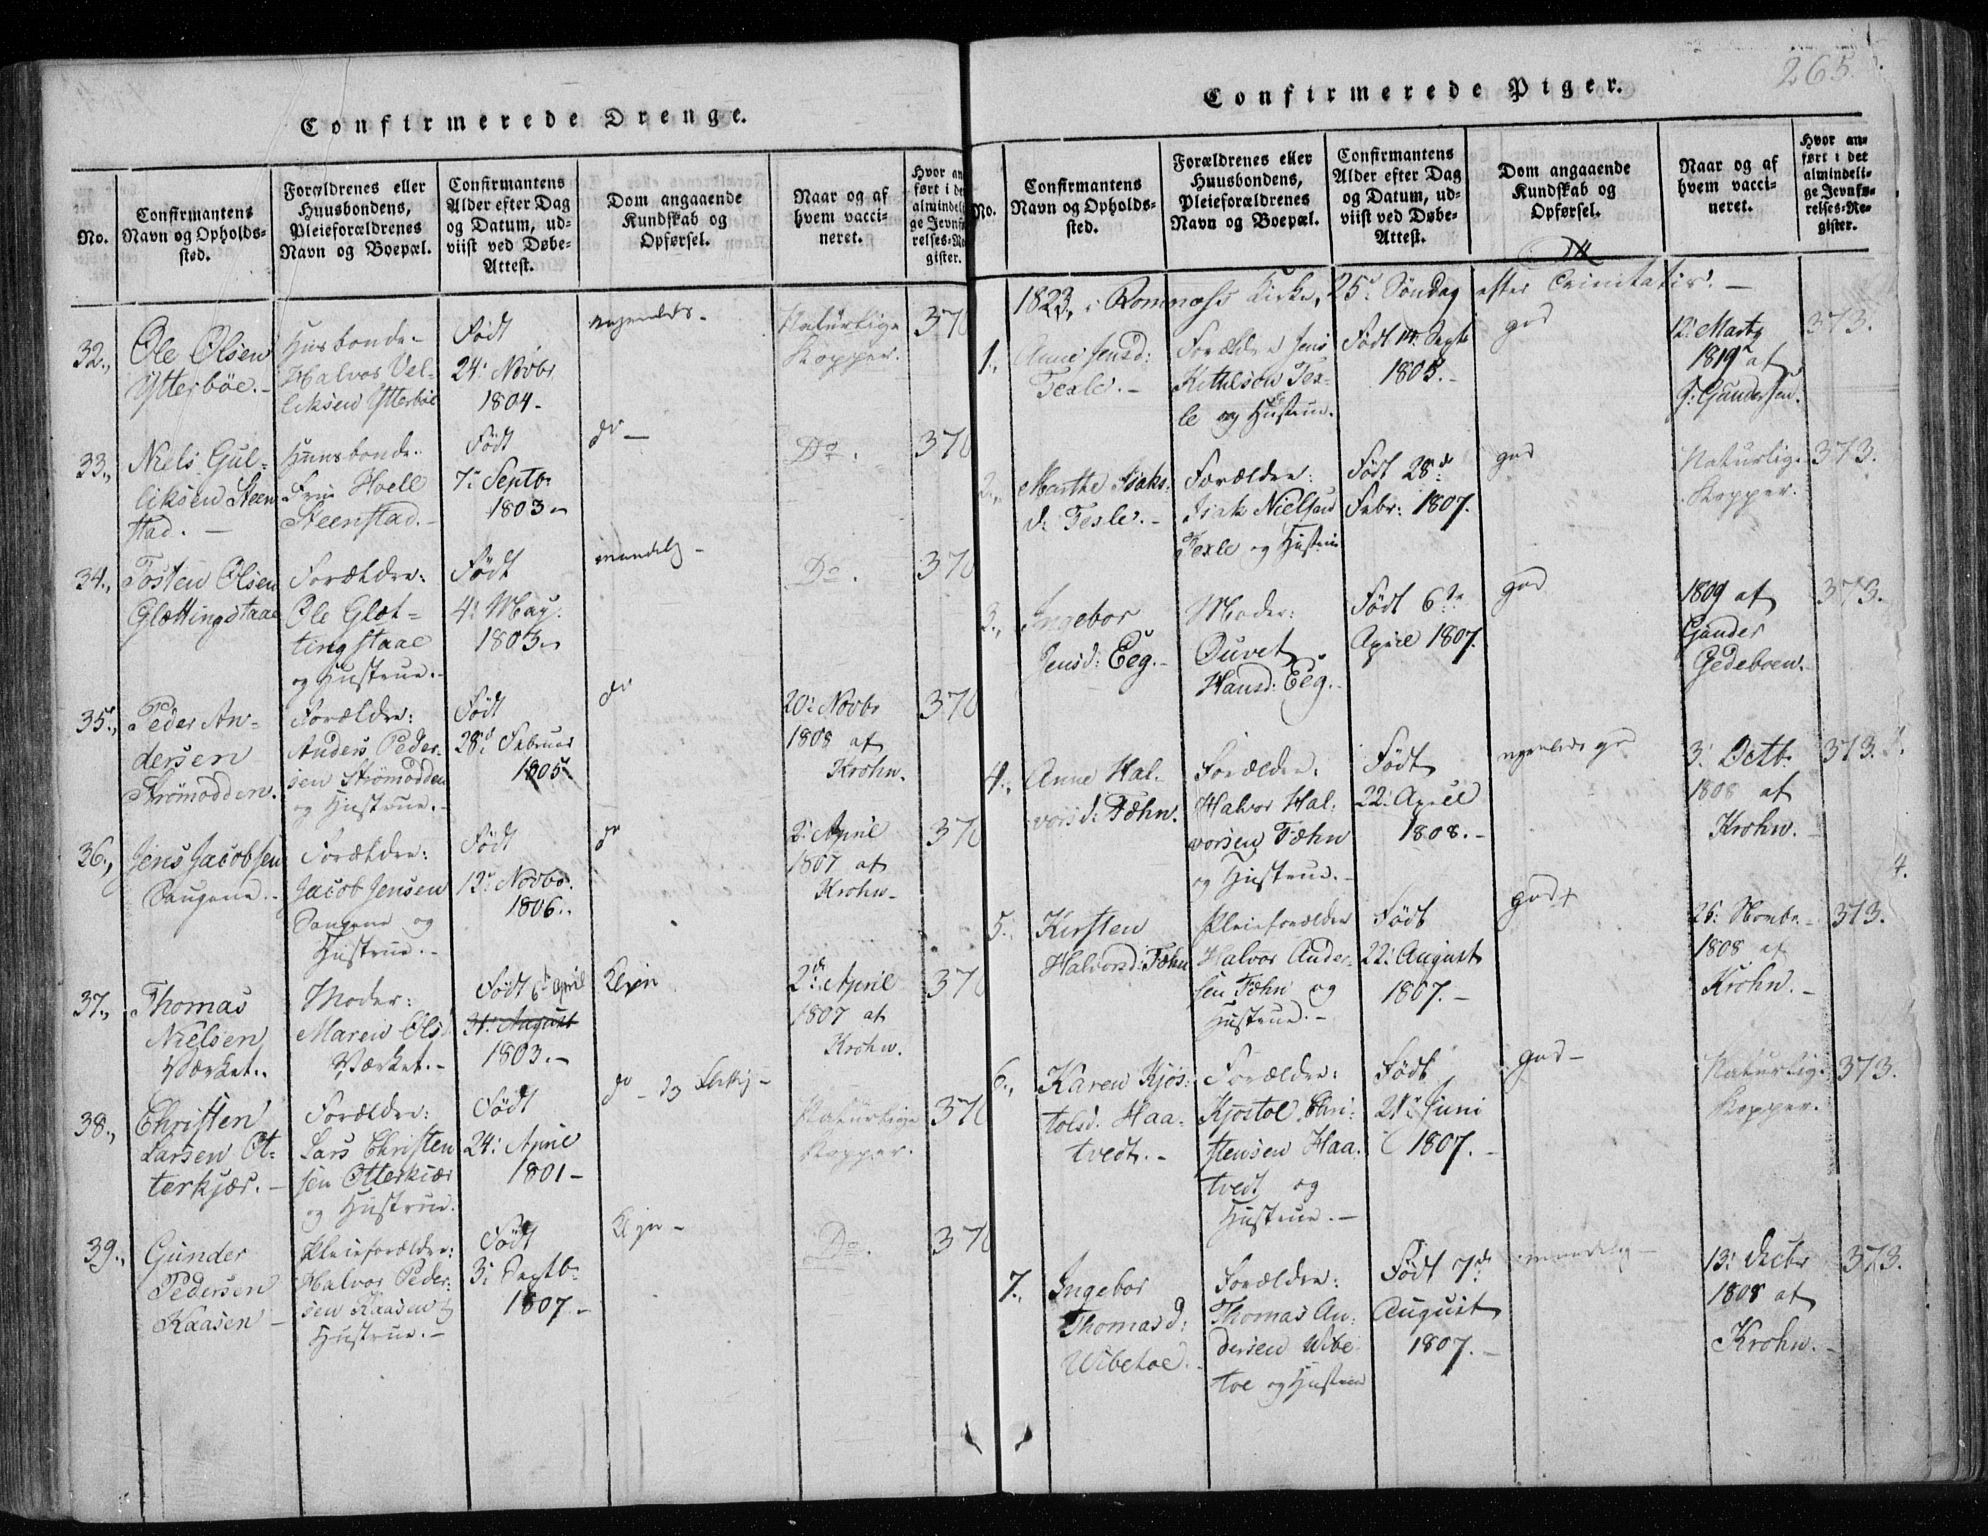 Confirmerede Drenge.
No.
Confirmantens
Navn og Opholds-
sted.
Forældrenes eller
Huusbondens,
Pleieforældrenes
Navn og Boepæl.
Confirmantens
Alder efter Dag
og Datum, ud-
viist ved Døbe-
Attest.
Dom angaaende
Kundskab og
Opførsel.
Naar og af
hvem vacci-
neret.
Hvor an
ført i de
almindel
ge Jevnfø
relses-Re
gister.
32.,
Ole Olsen
Ytterböe.-
Husbonde-
Halvor Vel-
liksen Ytterböe
Født
24: Novbr
1804-
Naturlige
Kopper.
370
33.,
Niels Gul-
liksen Steen
stad. -
Huusbonde.
Steenstad.-
Født
7: Septb.
1803.
do -
Do.
370
34.,
Tosten Olsen
Glættingstaae
Forældre:
Ole Glæt-
tingstaae
og Hustrue.-
Født
4: May:
1803.
maadelig -
Do.
370
35.,
Peder An-
dersen
Strömodden.
Forældre:
Anders Peder-
sen Strömodden
og Hustrue.-
Født
28d: Februar
1805
do
20: Novbr
1808 af
Krohn.
370
36.,
Jens Jacobsen
Saugene..
Forældre:
Jacob Jensen
Saugene og
Hustrue.-
Født
13: Novbr.
1806..
do
2: April
1807 af
Krohn-
370
37.,
Thomas
Nielsen
Værket..
Moder:
Maren Olsd
Værket.-
Født 6d April
31: August
1803.-
Klein
2de April
1807 af
Krohn.
370
38.,
Christen
Larsen Ot-
terkjær.-
Forældre:
Lars Christen
sen Otterkiær
og Hustrue.
Født
24: April
1801-
do - og
Naturlige
Kopper.
370
39.,
Gunder
Pedersen
Kaasen -
Pleieforældre:
Halvor Peder-
sen Kaasen og
Hustrue.-
Født
3: Septb.
1807.-
Klein -
Do.
370
265.
Confirmerede Piger.
No.
Confirmantens
Navn og Opholds-
sted.
Forældrenes eller
Huusbondens,
Pleieforældrenes
Navn og Boepæl.
Confirmantens
Alder efter Dag
og Datum, ud-
viist ved Døbe-
Attest.
Dom angaaende
Kundskab og
Opførsel.
Naar og af
hvem vacci-
neret.
Hvor an-
ført i det
almindeli-
ge Jevnfø-
relses-Re-
gister.
1823, i Romnæss Kirke, 25d Søndag efter Trinitatis. -
1.,
Anne Jensd:
Texle.-
Forældre Jens
Kittelson Tex-
le og Hustrue.
Født 14: Septb
1805.-
god
12: Marty
1819 af
G: Gundersen.
373.
2.,
Marthe Isaks-
d: Texle.-
Forældre:
Isak Nielsen
Texle og Hustrue
Født 28de
Febr: 1807.
god
Naturlige
Kopper.
373.
3.,
Ingebor
Jensd: Eeg.-
Moder:
Ouvet
Hansd: Eeg.-
Født 6te
April 1807.
god
1809 af
Gunder
Gedeboen.-
373.
4.,
Anne Hal-
vorsd: Fæhn.
Forældre:
Halvor Hal-
vorsen Fæhn
og Hustrue.-
Født
22: April
1808.-
3: Octb.
1808 af
Krohn.-
373.
5.,
Kirsten
Halvorsd: Fæhn
Pleieforældre
Halvor Ander-
sen Fæhn og
Hustrue.-
Født
22: August
1807.-
god+
26: Novbr.
1808 af
Krohn.-
373.
4.
6.,
Karen Kjös-
tolsd. Haa-
tvedt.-
Forældre:
Kjöstol Chri-
stensen Haa-
tvedt og
Hustrue.-
Født
21: Juni
1807.-
god-
Naturlige
Kopper.
373.
7.,
Ingebor
Thomasd:
Wibetoe.-
Forældre:
Thomas An-
dersen Wibe-
toe og Hustrue
Født 7de
August
1807.-
maadelig-
13: Decbr
1808 af
Krohn.-
373.